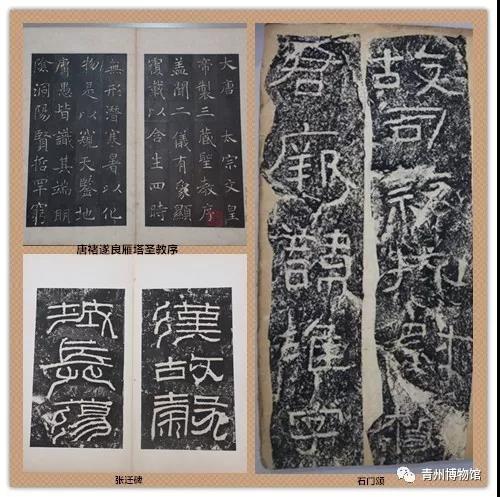 大唐 太宗文皇
帝製三藏聖教序
蓋聞二儀有像顯
覆載以含生四時
無形潛寒暑以化
物是以窺天鑒地
庸愚皆識其端明
陰洞陽賢哲罕窮
唐褚遂良雁塔圣教序
漢故穀
城長蕩
张迁碑
故司隸校尉
君諱雄字
石门颂
青州博物馆